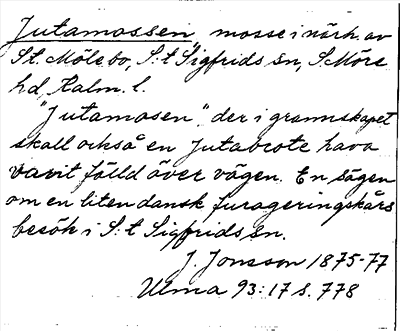 Jutamossen, mosse i närh. av
St. Mölebo, S:t Sigfrids sn, S Möre
hd, Kalm. l.
"Jutamosen", der i grannskapet
skall också en Jutabrote hava
varit fälld över vägen. En sägen
om en liten dansk furageringskårs
besök i S:t Sigfrids sn.
J. Jonsson 1875-77
Ulma 93:17 s. 778